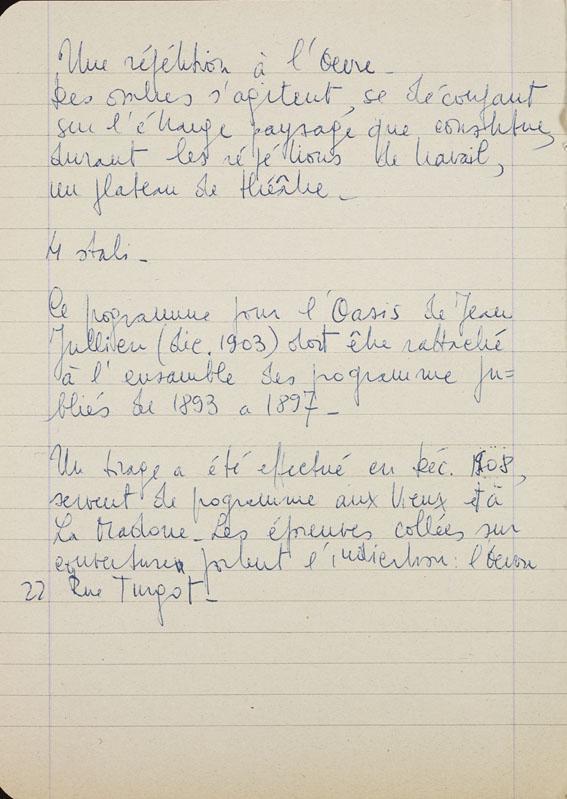 Une répétition à l'Oeuvre_
Des ombres s'agitent, se découpant
sur l'étrange paysage que constitue,
durant les répétions de travail,
un plateau de théâtre_
4 stati_
Le pogramme pour l'Oasis de Jean
Jullien (dic. 1903) doit être rattaché
à l'ensamble des programme pu=
bliés de 1893 a 1897_
Un tirage a été effectué en Déc. 1903,
servent de programme aux Vieux et à
La Madone_Les épreuves collées sur
couverture portent l'indication: l'Oeuvre
22 Rue Turgot_